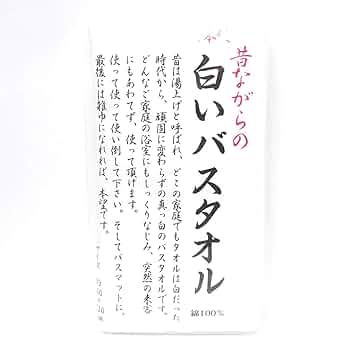 昔ながらの
白いバスタオル
綿100%
昔は湯上げと呼ばれ、どこの家庭でもタオルは白だった
時代から、頑固に変わらずの真っ白のバスタオルです。
どんなご家庭の浴室にもしっくりなじみ、突然の来客
にもあわてず、使って頂けます。
使って使って使い倒して下さい。そしてバスマットに、
最後には雑巾になれれば、本望です。